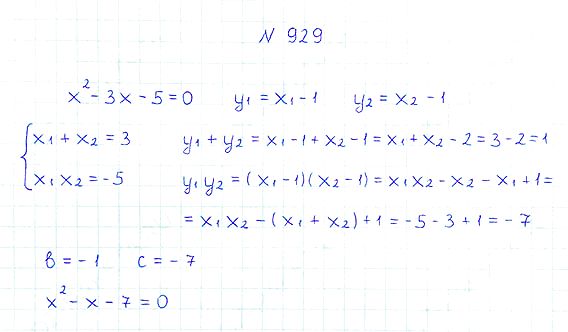 N 929
x² - 3x - 5 = 0 y₁ = x₁ - 1 y₂ = x₂ - 1
{ x₁ + x₂ = 3 y₁ + y₂ = x₁ - 1 + x₂ - 1 = x₁ + x₂ - 2 = 3 - 2 = 1
x₁ x₂ = -5 y₁ y₂ = (x₁ - 1)(x₂ - 1) = x₁x₂ - x₂ - x₁ + 1 =
= x₁ x₂ - (x₁ + x₂) + 1 = -5 - 3 + 1 = -7
в = -1 c = -7
x² - x - 7 = 0